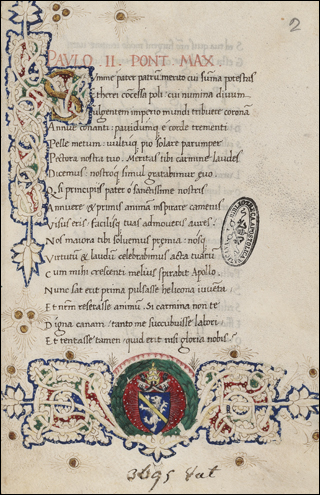 2
PAVLO . II . PONT MAX
Summe pater patrum: merito cui summa potestas
Etherei concessa poli: cui numina divum
Fulgentem imperio mundi tribuere coronā
Annue conanti: pavidumq; e corde trementi
Pelle metum: vultuq; pio solare parumper
Pectora nostra tuo. Meritas tibi carmine laudes
Dicemus: nostroq; simul gratabimur evo.
Q. Si principiis pater o sanctissime nostris
Annuere & primis animā inspirare camenis
Visus eris: facilisq; tuas admoveris aures:
Nos maiora tibi solvemus premia: nosq;
Virtutū & laudū celebrabimus acta tuarū
Cum mihi crescenti melius spirabit Apollo.
Nunc sat erit prima pulsasse helicona iuvētā
Et nrm̄ resetasse animū. Si carmina non te
Digna canam: tanto me succubuisse labori
Et tentasse tamen: quod erit nisi gloria nobis
3695 Vat